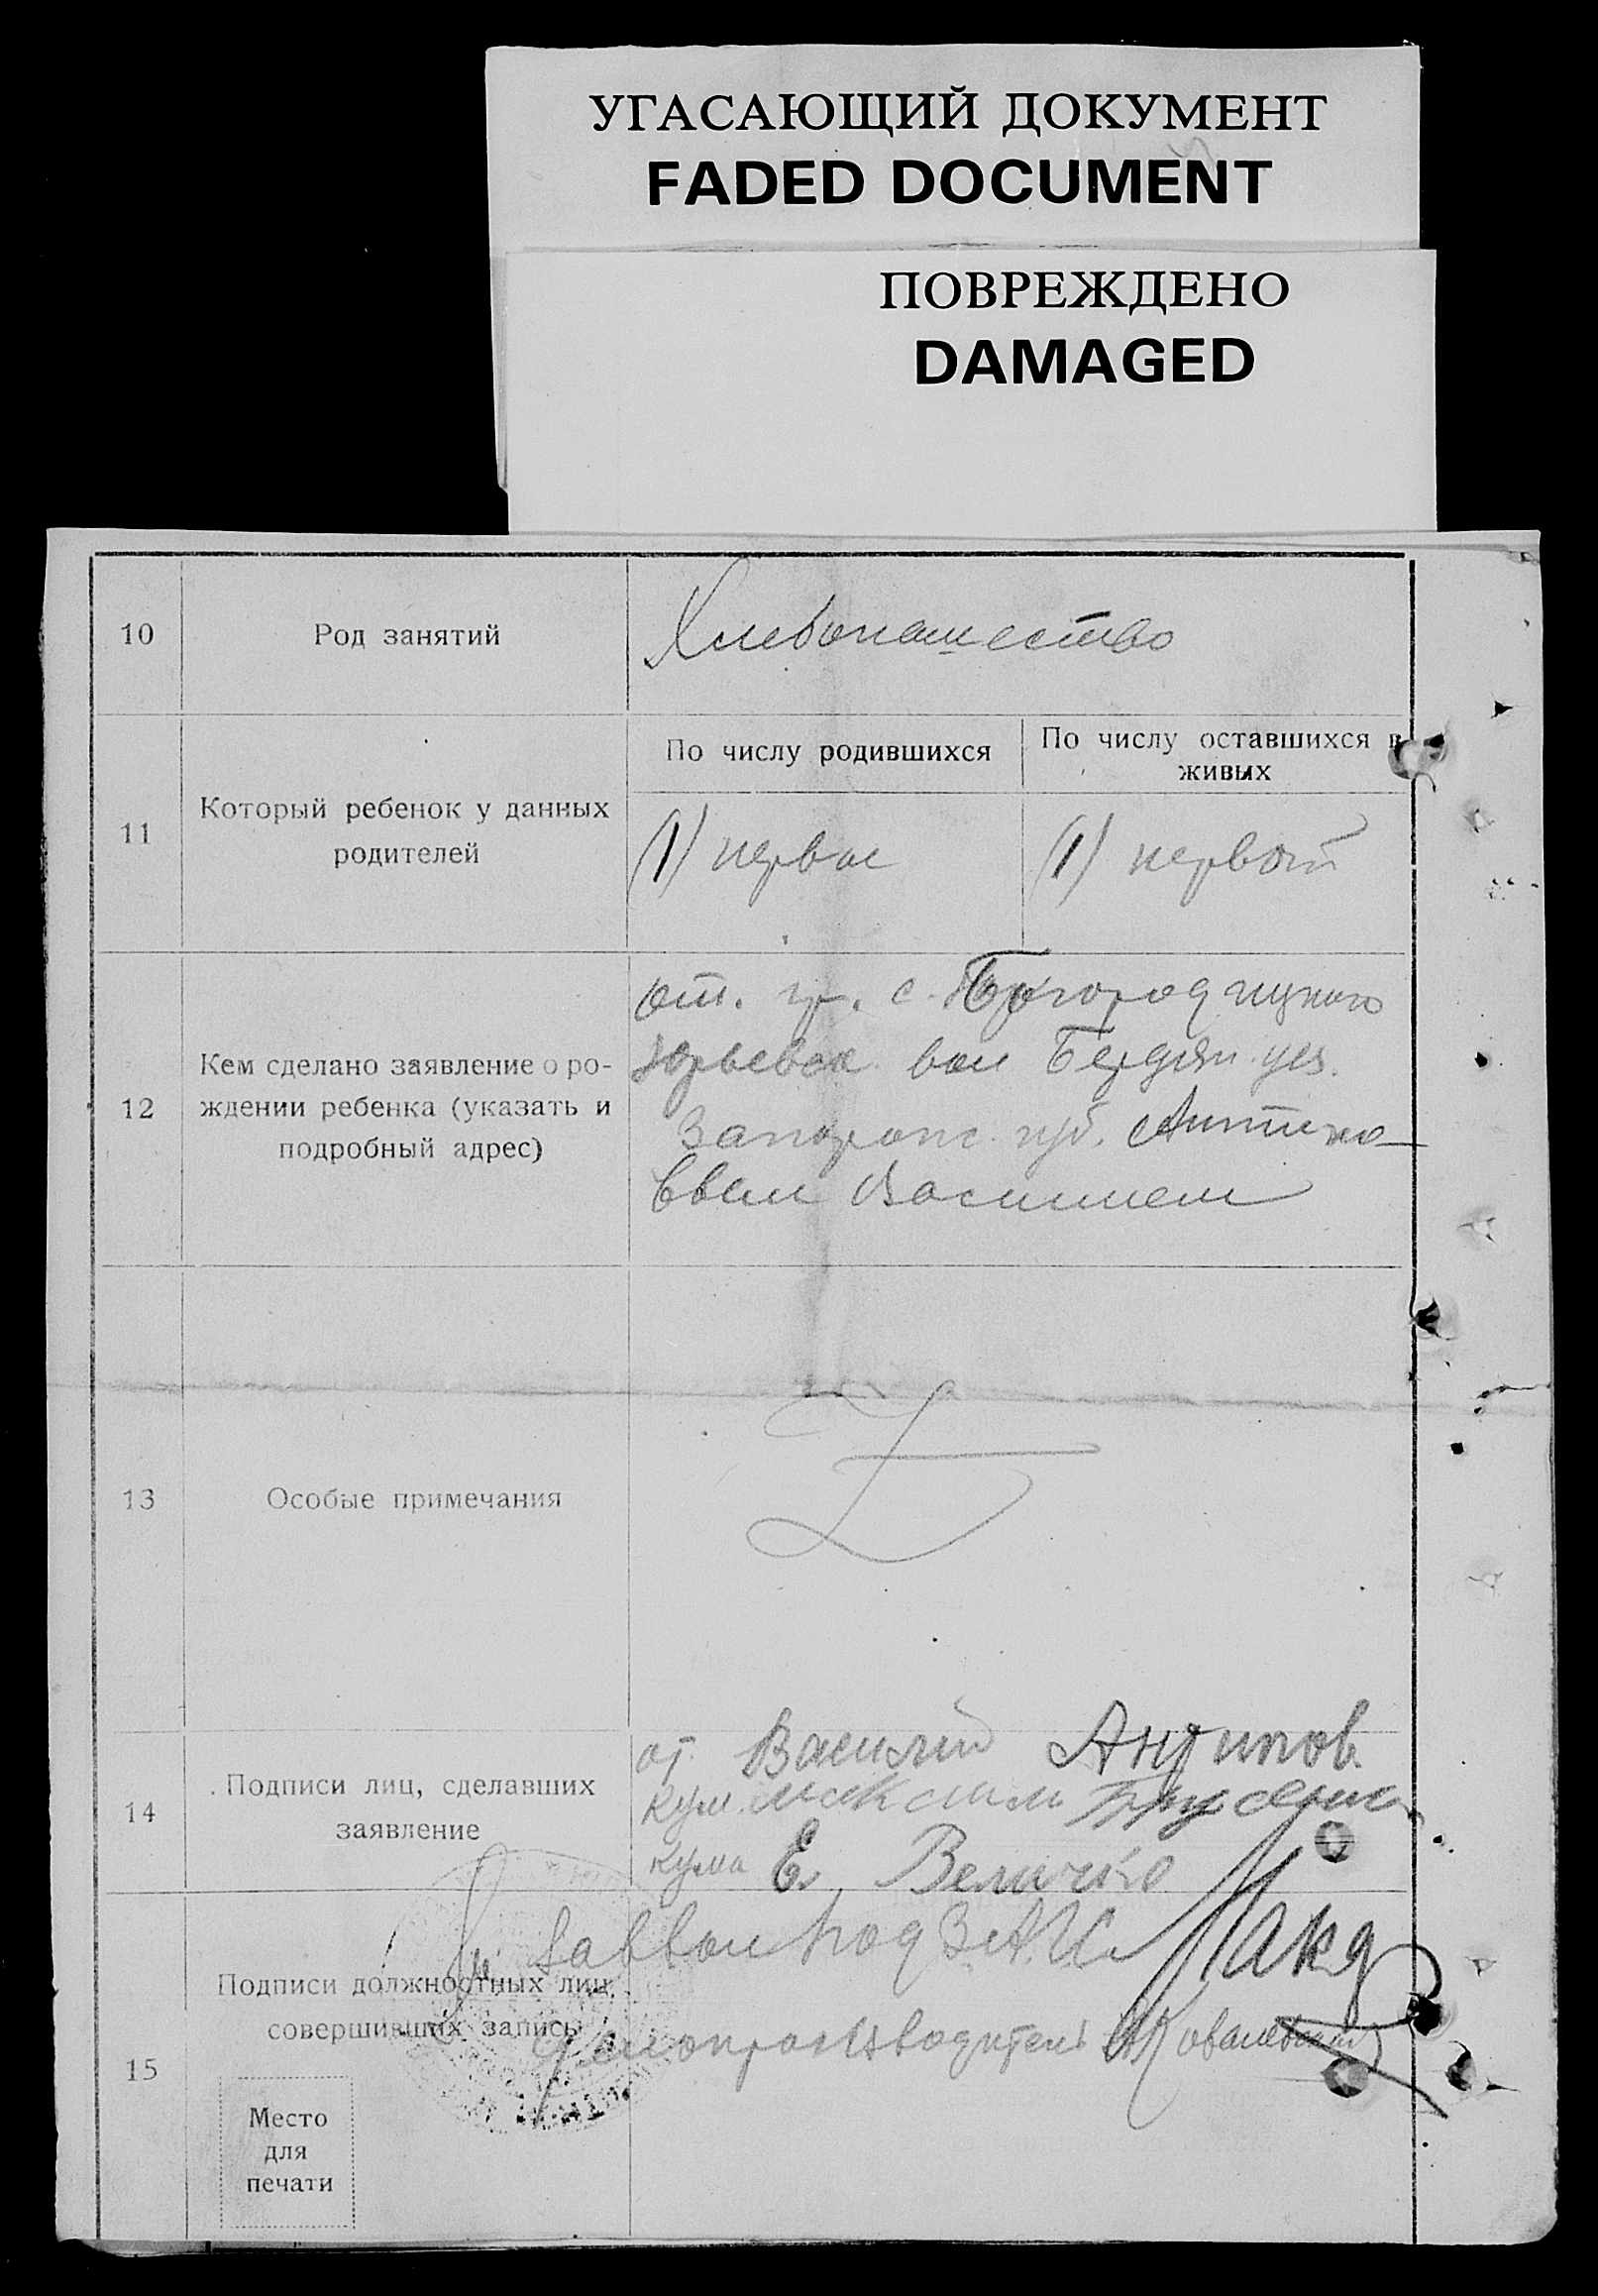 УГАСАЮЩИЙ ДОКУМЕНТ
FADED DOCUMENT
ПОВРЕЖДЕНО
DAMAGED
10
Род занятий
Хлебопашество
11
Который ребенок у данных
родителей
По числу родившихся
(1) первое
По числу оставшихся в
живых
(1) первой
12
Кем сделано заявление о ро-
ждении ребенка (указать и
подробный адрес)
от. гр. с. Богородицкого
Юрьевск. вол Бердян. уез.
Запорож. губ. Антипо-
ввым Василием
13
Особые примечания
14
Подписи лиц, сделавших
заявление
от. Василий Антипов.
кум. Максим
кума Е. Величко
15
Подписи должностных лиц,
совершивших запись
Завед под З.А.Г.
Делопроизводитель Ковалевский
Место
для
печати